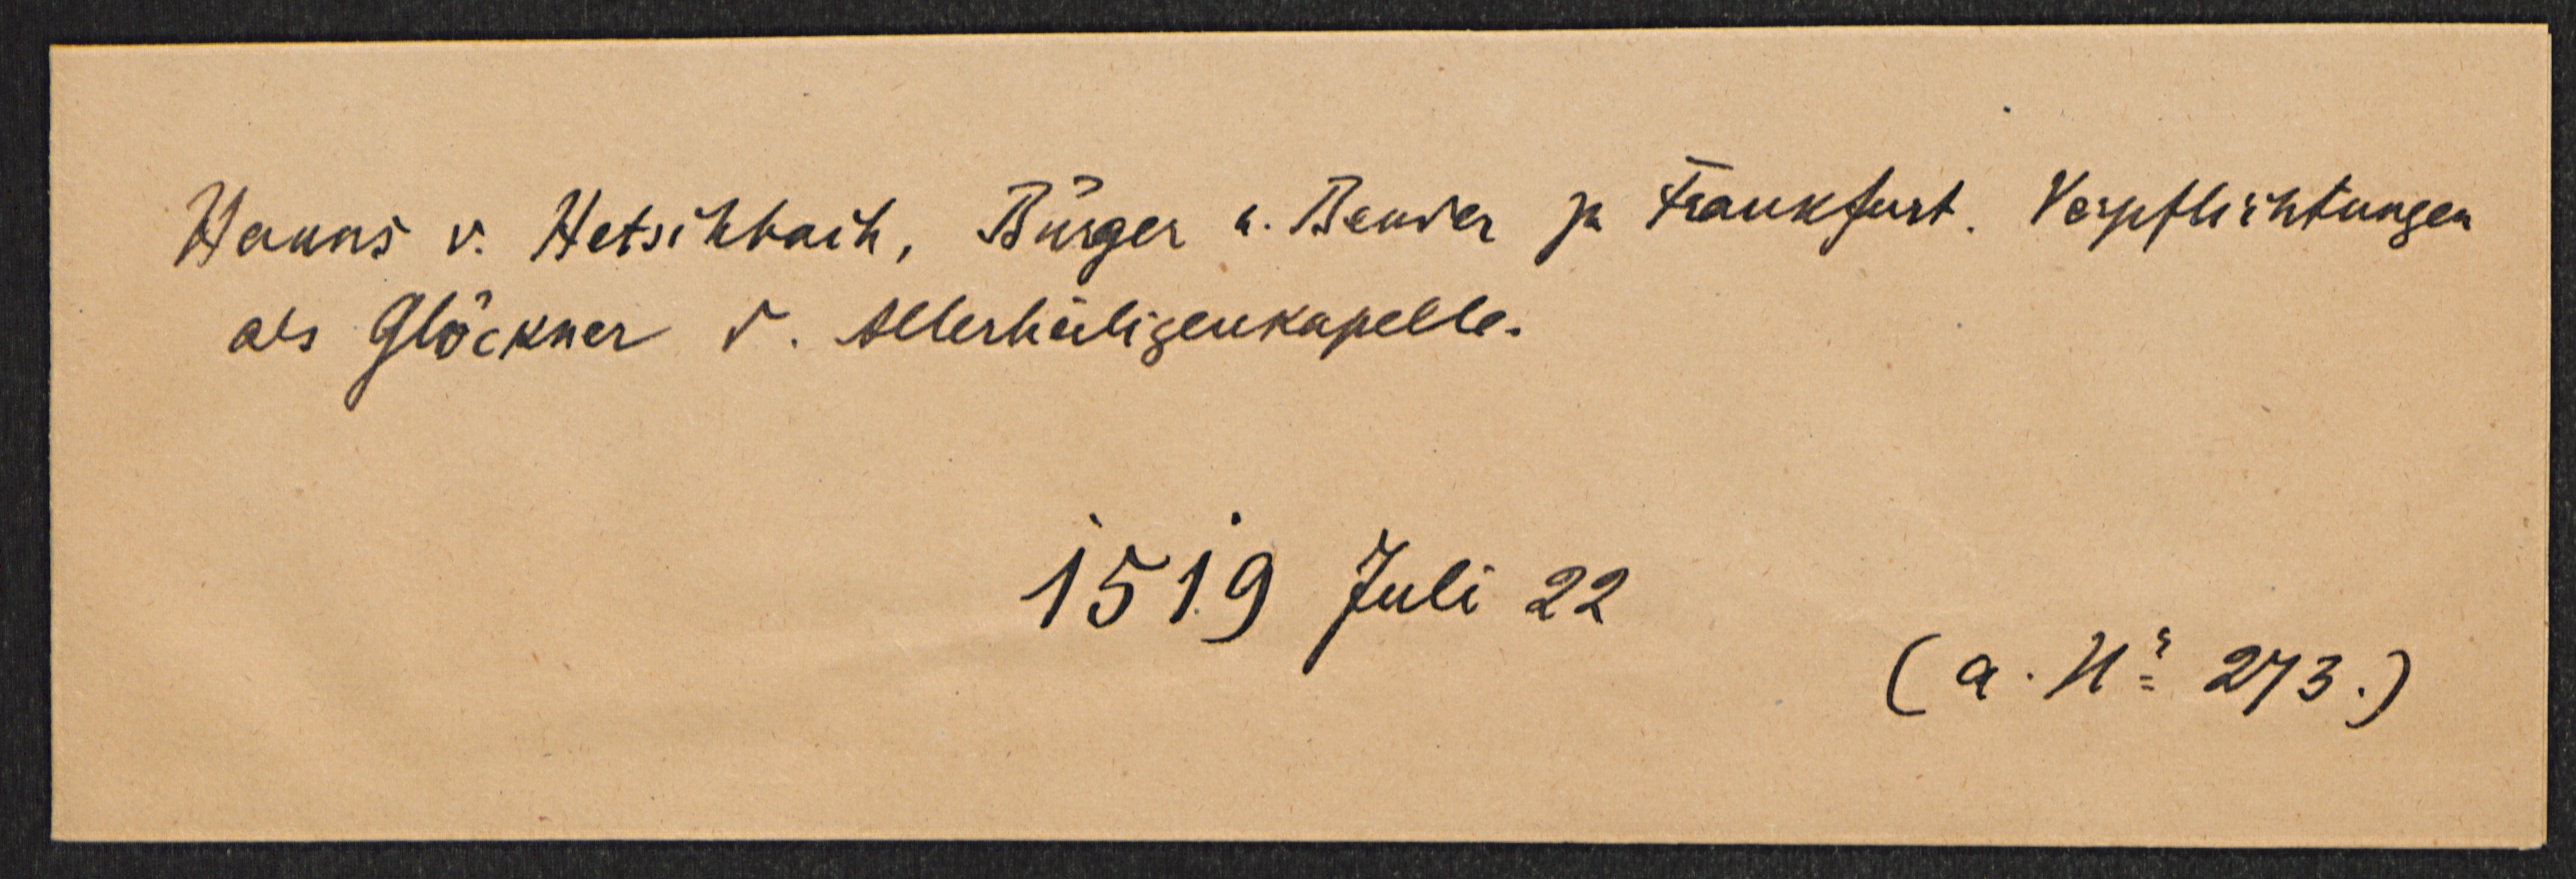 Hanns v. Hetschbach, Bürger u. Bender zu Frankfurt. Verpflichtungen
als Glöckner d. Allerheiligenkapelle.
1519 Juli 22
(a. Nr. 273.)